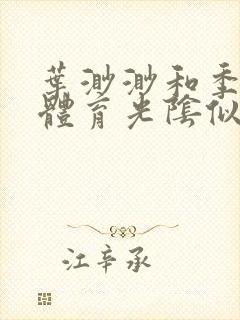 葉渺渺和季
體育光陰似
江辛承